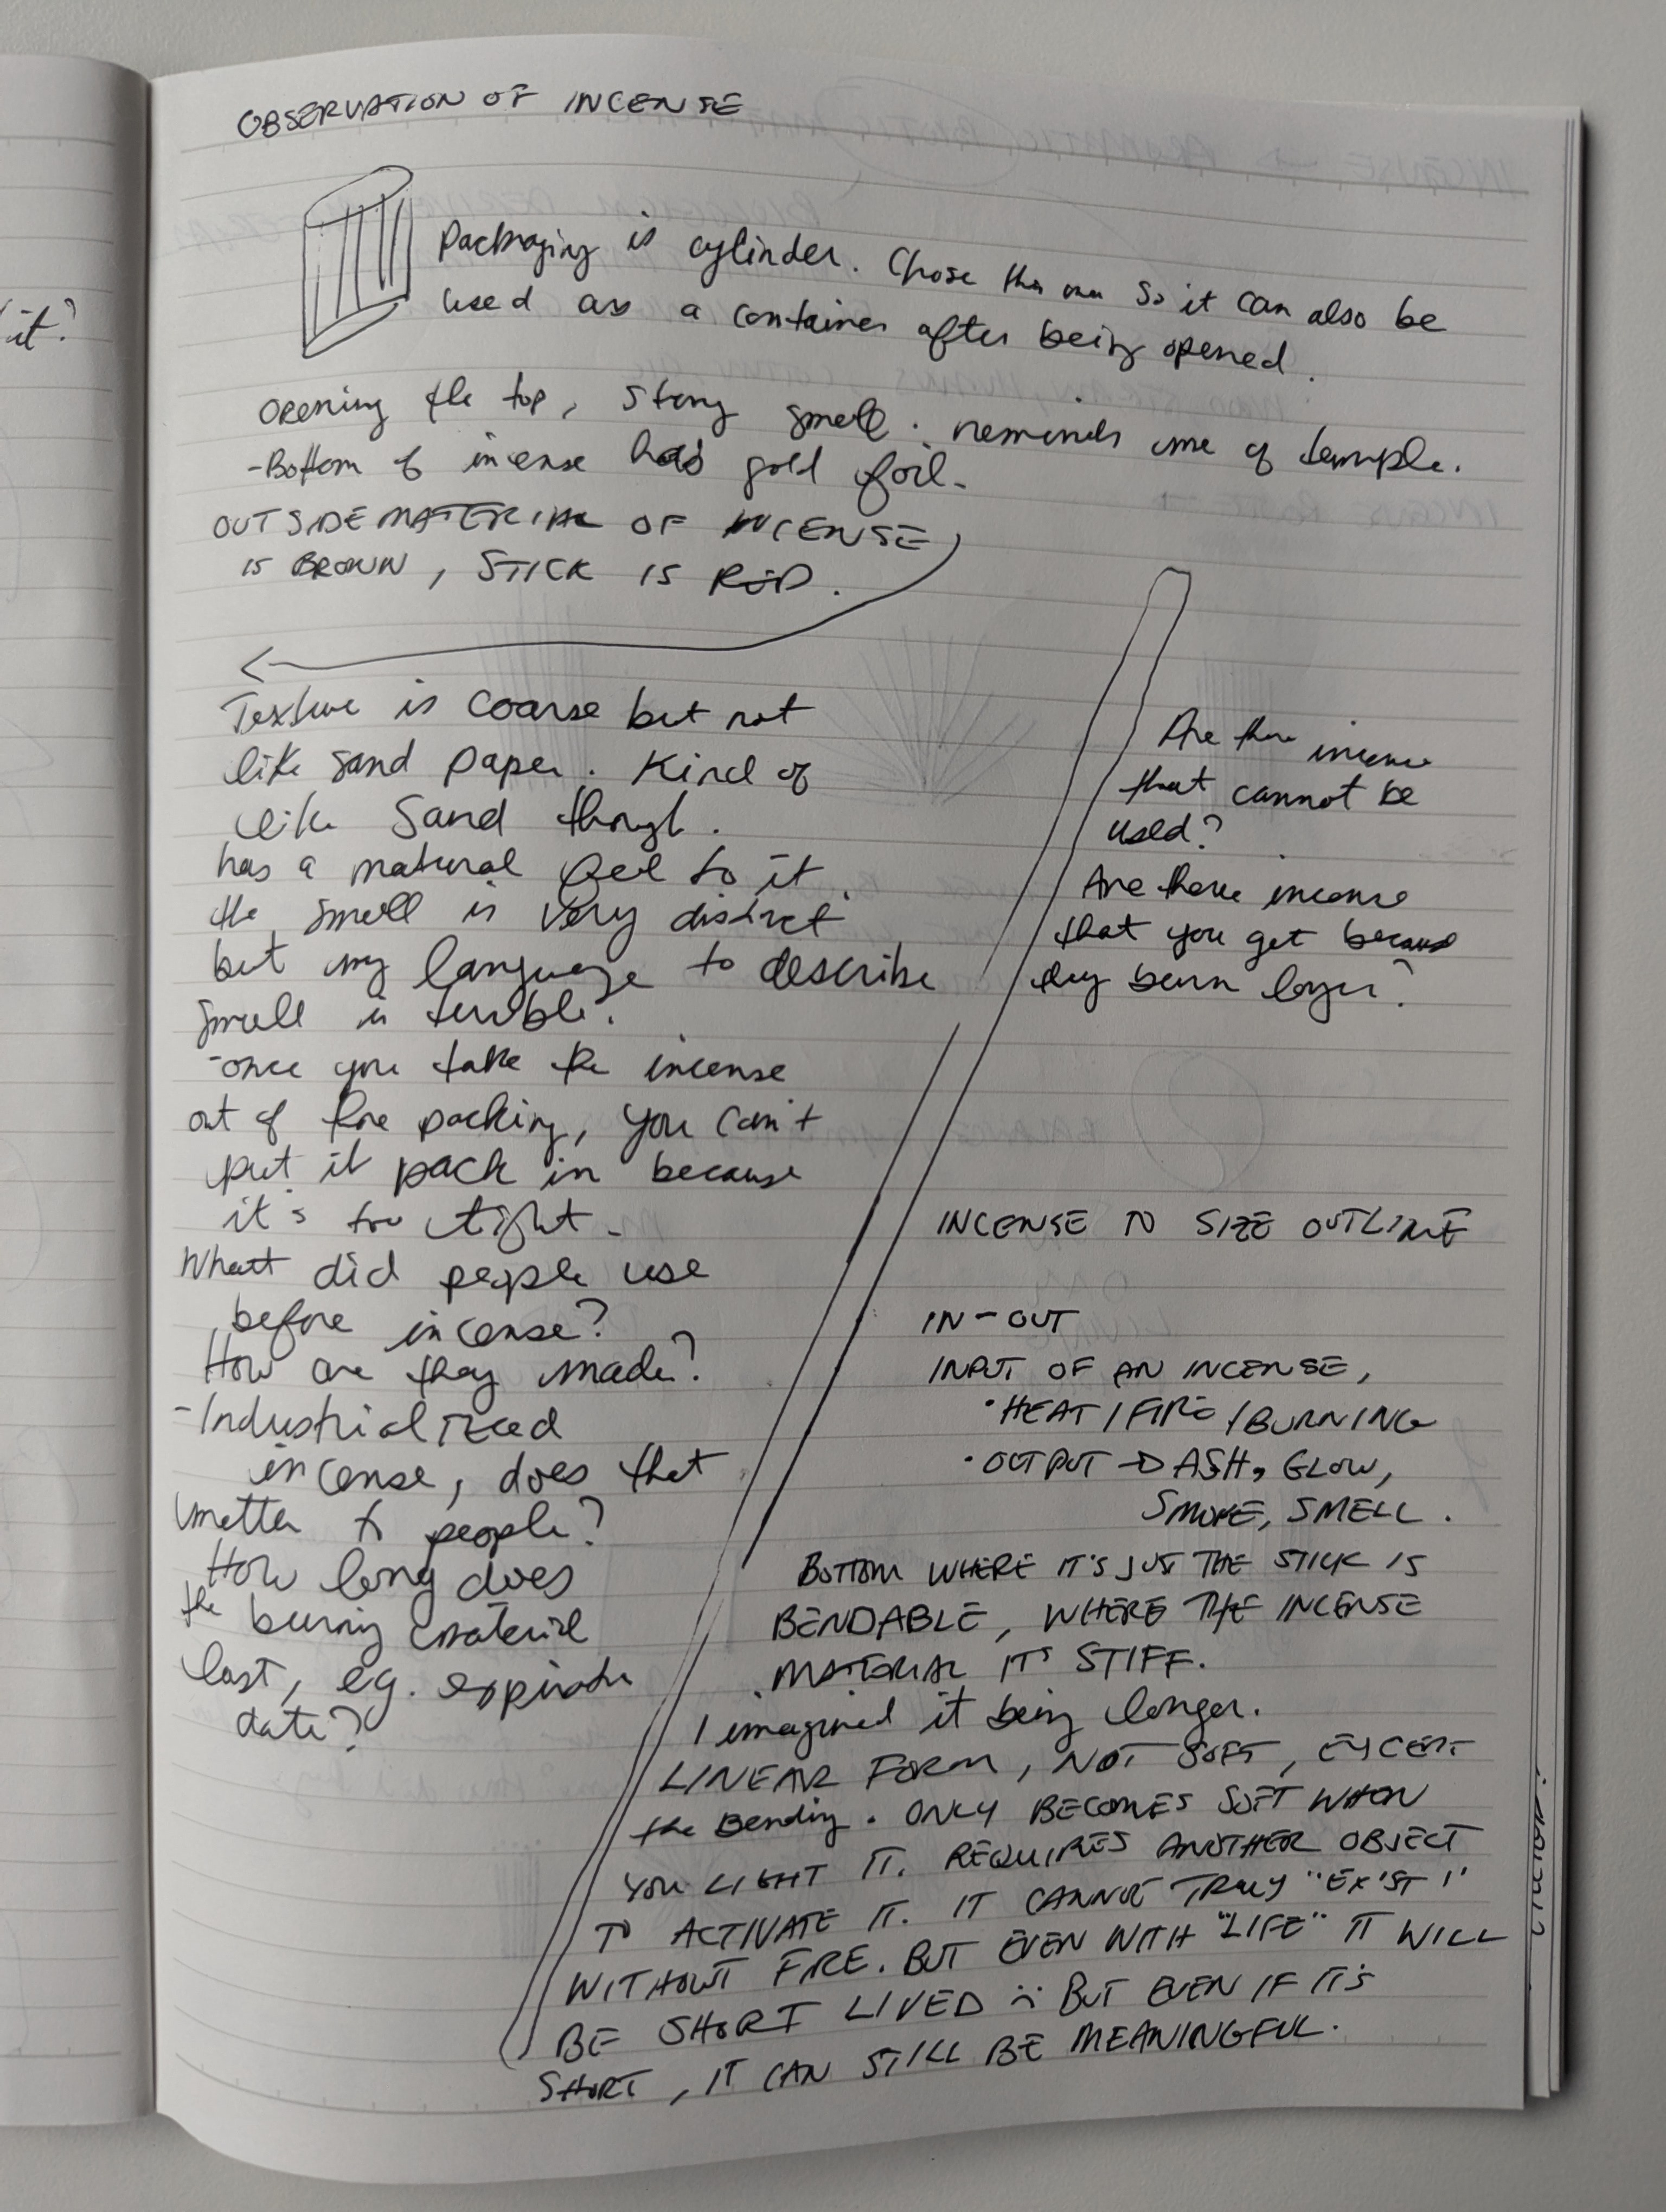 OBSERVATION OF INCENSE
Packaging is cylinder. Chose this one so it can also be
used as a container after being opened.
opening the top, strong smell. reminds me of temple.
-Bottom of incense has gold foil.
OUTSIDE MATERIAL OF INCENSE
IS BROWN, STICK IS RED.
Texture is coarse but not
like sand paper. Kind of
like sand though.
has a natural feel to it.
the smell is very distinct
but my language to describe
smell is terrible.
-once you take the incense
out of the packing, you can't
put it back in because
it's too tight.
What did people use
before incense?
How are they made?
-Industrialized
incense, does that
matter to people?
How long does
the burning material
last, eg. expiration
date?
Are there incense
that cannot be
used?
Are there incense
that you get because
they burn longer?
INCENSE TO SIZE OUTLINE
IN-OUT
INPUT OF AN INCENSE,
•HEAT/FIRE/BURNING
•OUTPUT → ASH, GLOW,
SMOKE, SMELL.
BOTTOM WHERE IT'S JUST THE STICK IS
BENDABLE, WHERE THE INCENSE
MATERIAL IT'S STIFF.
I imagined it being longer.
LINEAR FORM, NOT SOFT, EXCEPT
the Bending. ONLY BECOMES SOFT WHEN
YOU LIGHT IT. REQUIRES ANOTHER OBJECT
TO ACTIVATE IT. IT CANNOT TRULY "EXIST"
WITHOUT FIRE. BUT EVEN WITH "LIFE" IT WILL
BE SHORT LIVED :( BUT EVEN IF IT'S
SHORT, IT CAN STILL BE MEANINGFUL.
it?